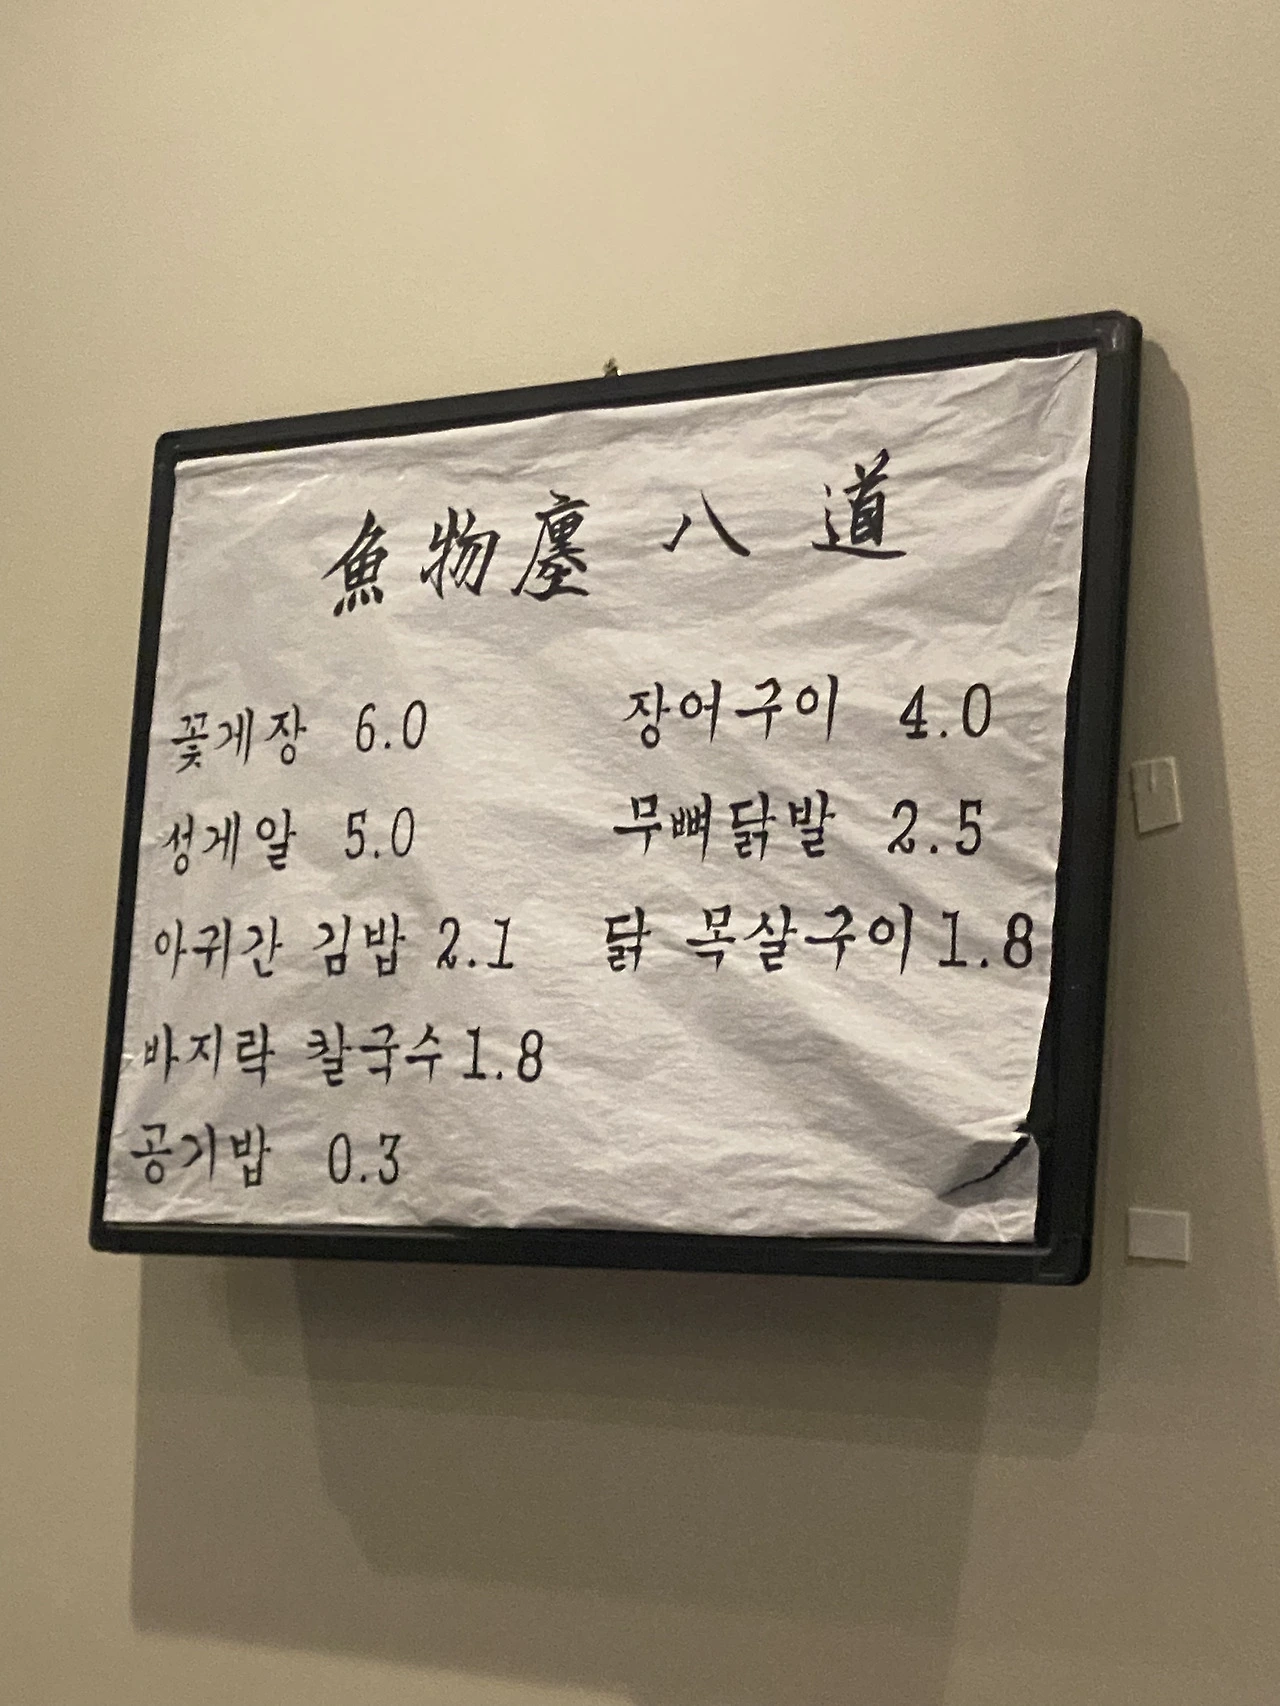 魚物廛 八道
꽃게장 6.0
성게알 5.0
아귀간 김밥 2.1
바지락 칼국수 1.8
공기밥 0.3
장어구이 4.0
무뼈닭발 2.5
닭 목살구이 1.8